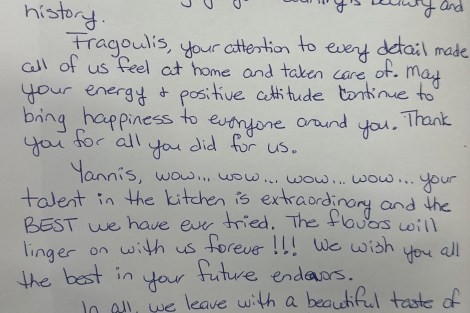 beauty and
history.
Fragoulis, your attention to every detail made
all of us feel at home and taken care of. May
your energy & positive attitude continue to
bring happiness to everyone around you. Thank
you for all you did for us.
Yannis, wow... wow... wow... wow... wow... your
talent in the kitchen is extraordinary and the
BEST we have ever tried. The flavors will
linger on with us forever !!! We wish you all
the best in your future endeavors.
In all, we leave with a beautiful taste of